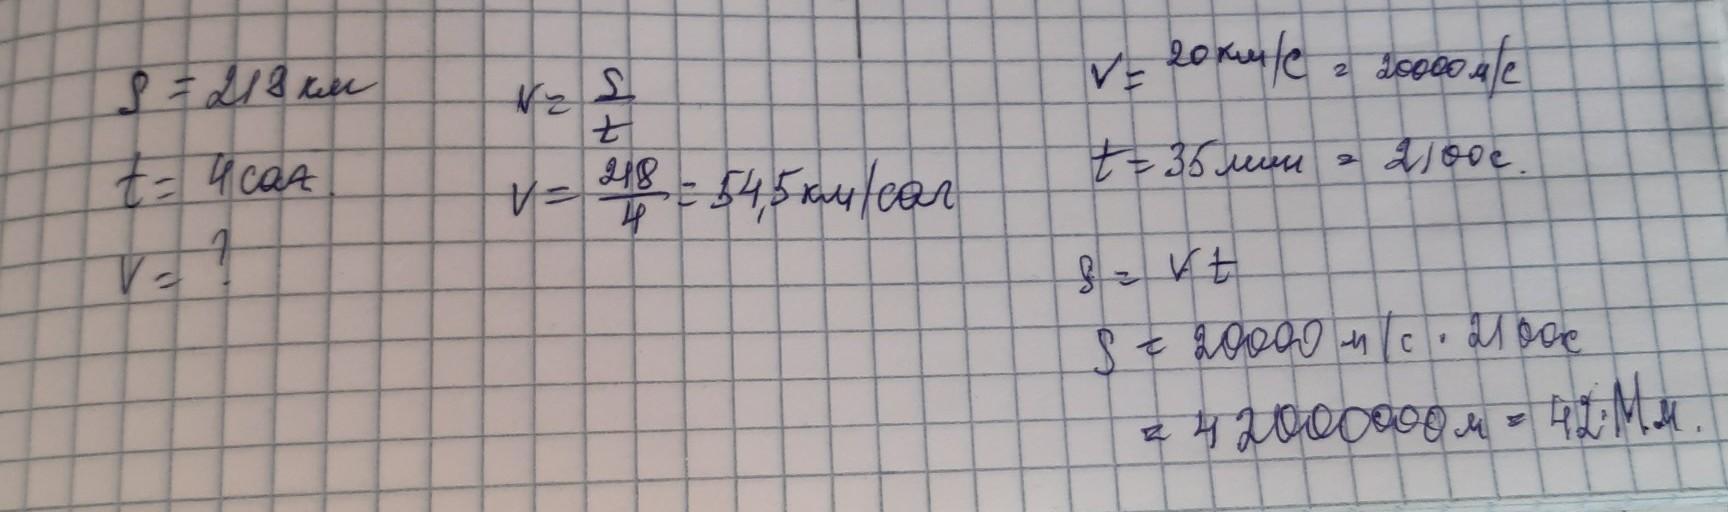 S = 218 км
t = 4 саат.
v = ?
v = S/t
v = 218/4 = 54,5 км/саат
v = 20 км/с = 20000 м/с
t = 35 мин = 2100 с.
S = v t
S = 20000 м/с · 2100 с
= 42000000 м = 42 Мм.